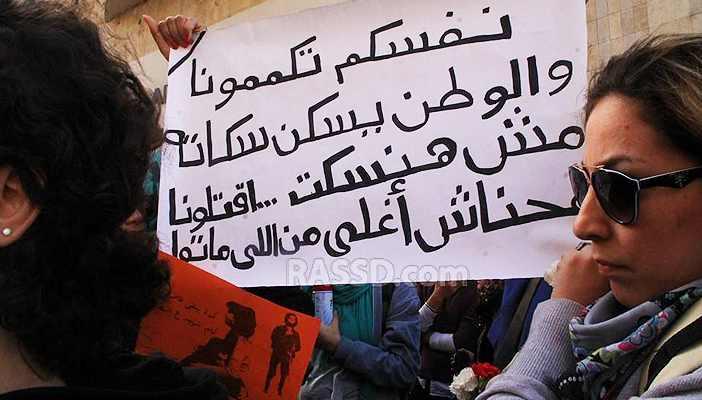 نفسكم تكممونا
والوطن يسكن سكاته
مش هنسكت ... اقتلونا
محناش أغلى من اللى ماتوا
RASSD.com